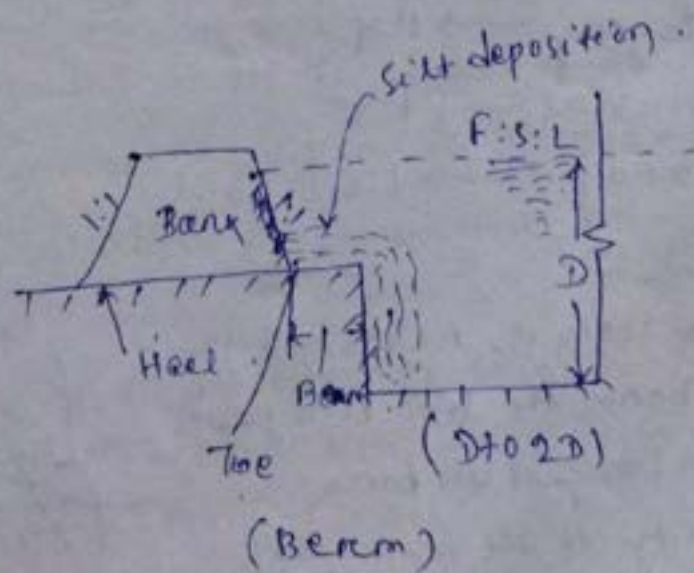 Silt deposition.
F.S.L
1:1
Bank
1:1
D
Heel
Berm
Toe
(D to 2D)
(Berm)